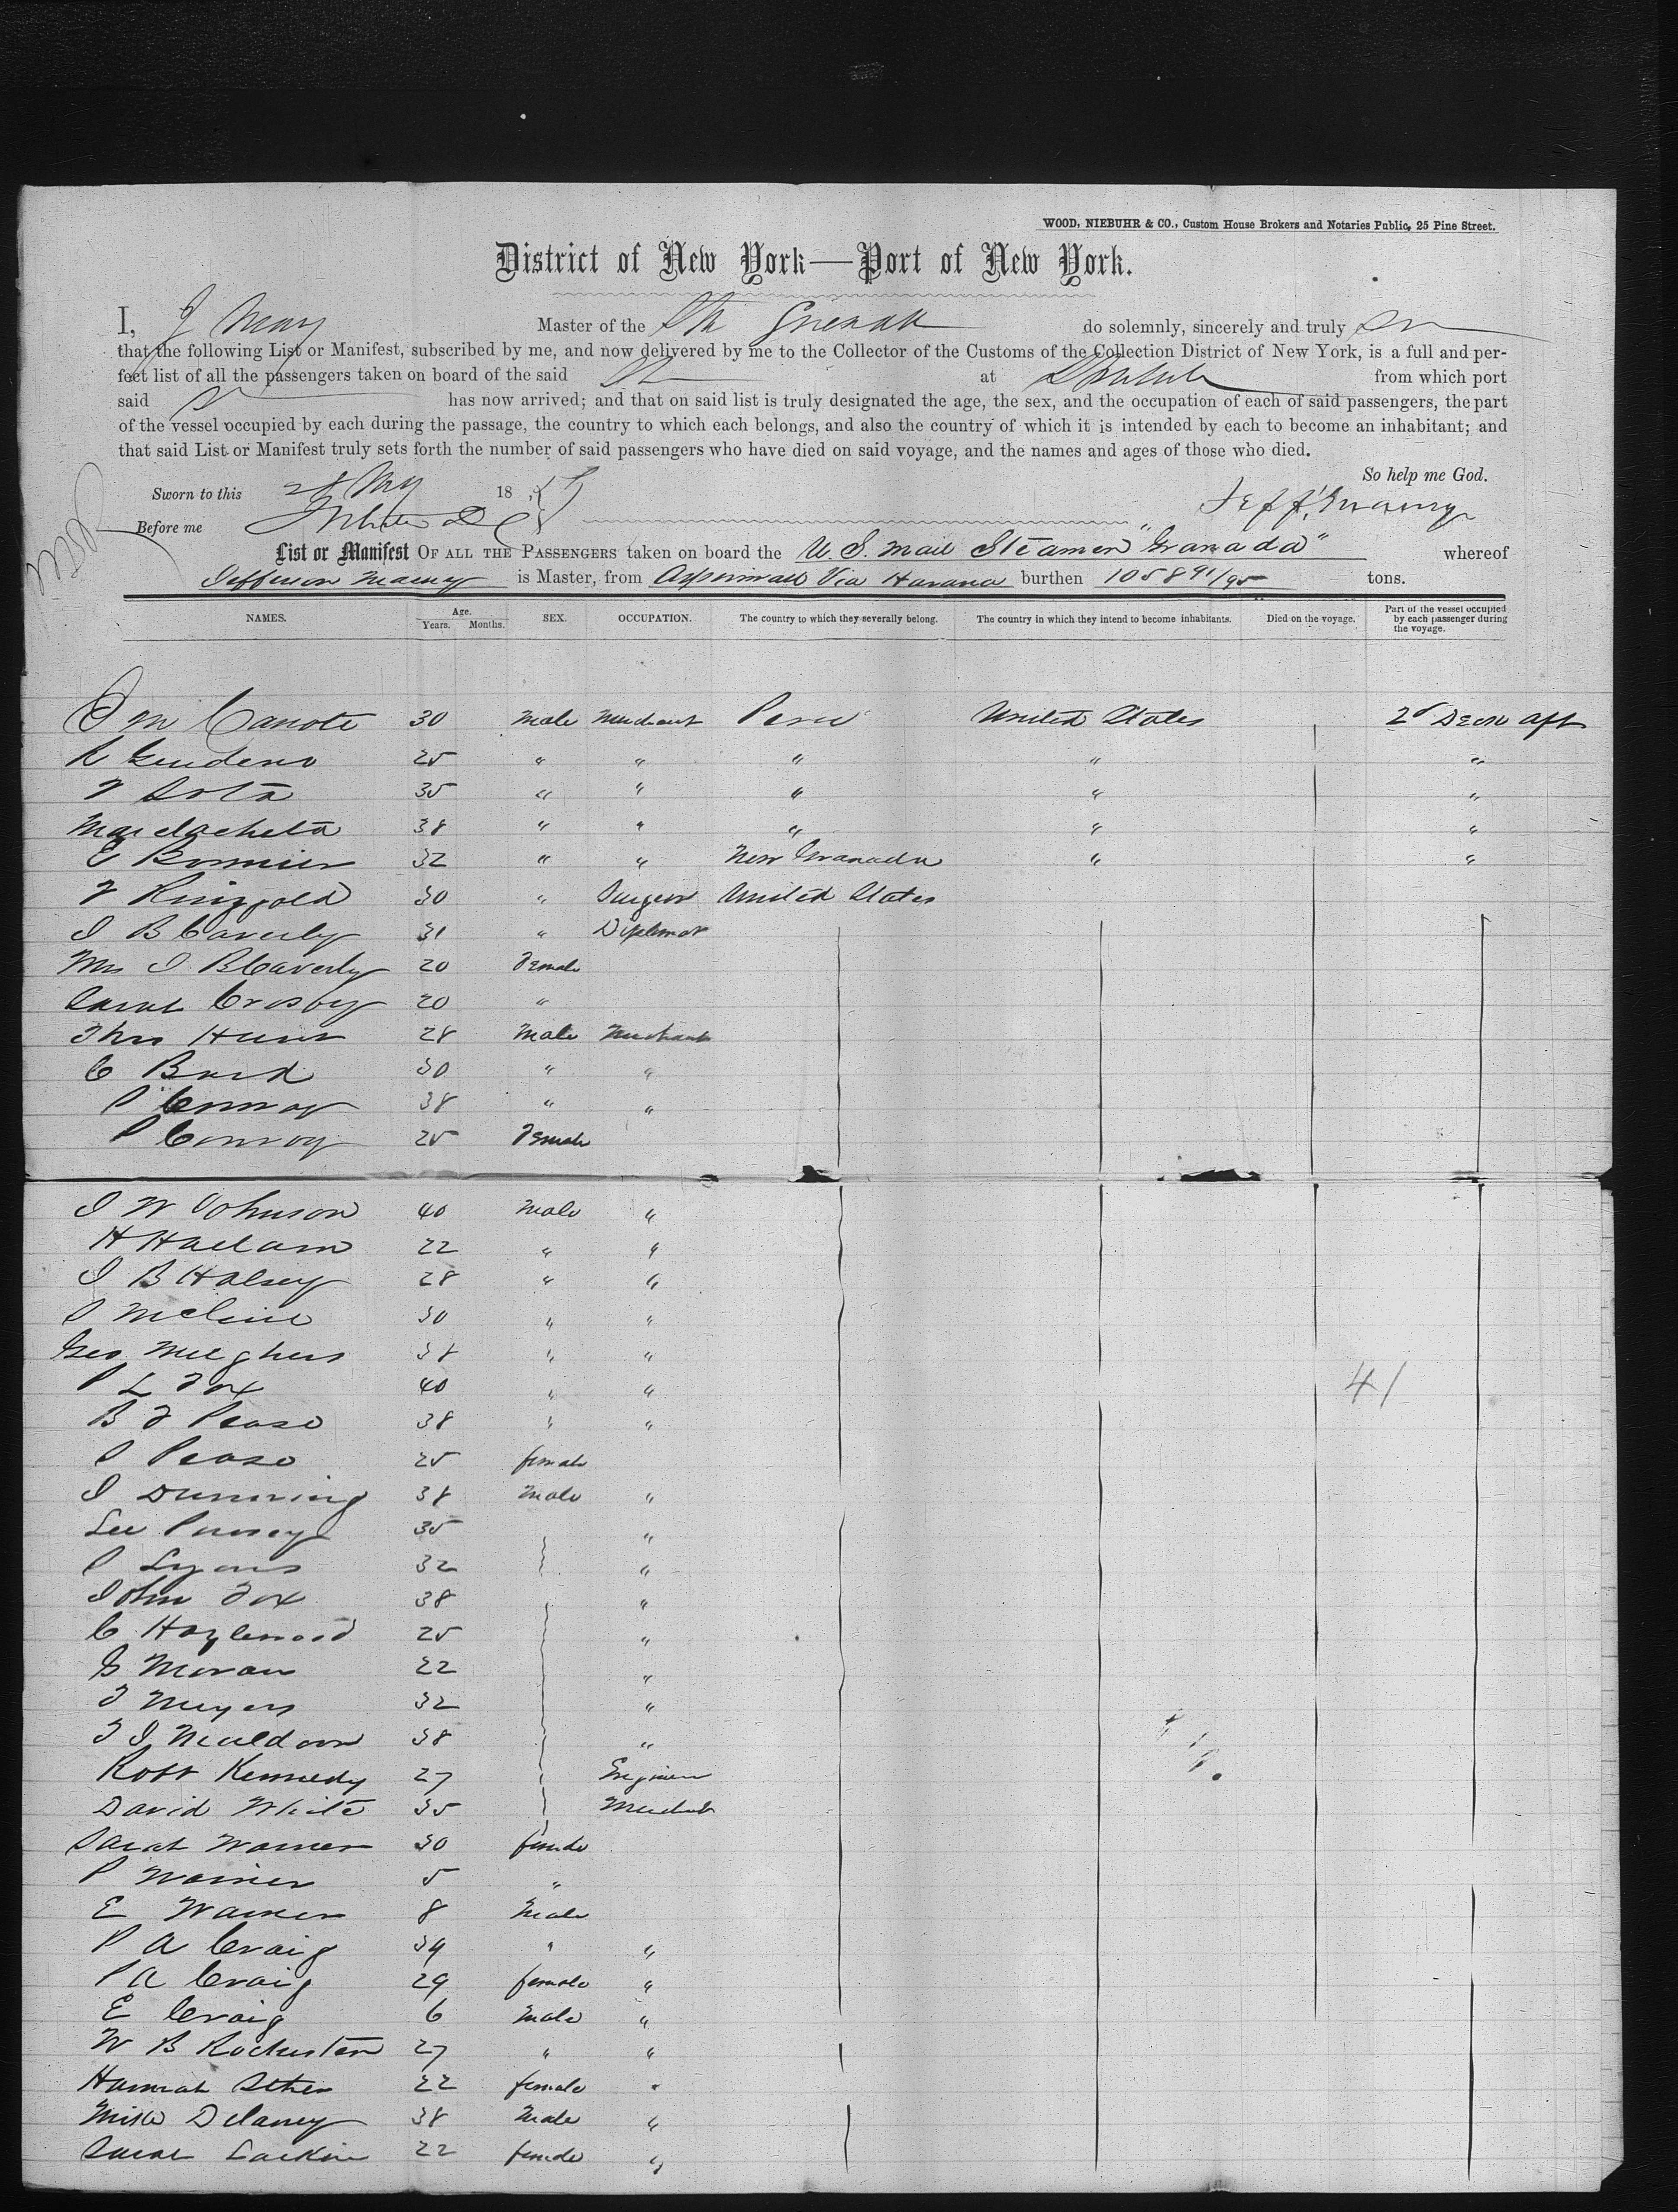 WOOD, NIEBUHR & CO., Custom House Brokers and Notaries Public, 25 Pine Street.
District of New York—Port of New York.
I, J Maury Master of the Str Grenada do solemnly, sincerely and truly
that the following List or Manifest, subscribed by me, and now delivered by me to the Collector of the Customs of the Collection District of New York, is a full and per-
fect list of all the passengers taken on board of the said at from which port
said has now arrived; and that on said list is truly designated the age, the sex, and the occupation of each of said passengers, the part
of the vessel occupied by each during the passage, the country to which each belongs, and also the country of which it is intended by each to become an inhabitant; and
that said List or Manifest truly sets forth the number of said passengers who have died on said voyage, and the names and ages of those who died.
So help me God.
Sworn to this 28 May 18
Jeff. Maury
Before me
List or Manifest OF ALL THE PASSENGERS taken on board the U. S. Mail Steamer "Granada" whereof
Jefferson Maury is Master, from Aspinwall Via Havana burthen 1058 91/95 tons.
NAMES. Age. Years. Months. SEX. OCCUPATION. The country to which they severally belong. The country in which they intend to become inhabitants. Died on the voyage. Part of the vessel occupied by each passenger during the voyage.
J M Canote 30 Male Merchant Peru United States 2d Decn aft
25 " " " " "
F Sota 35 " " " " "
38 " " " " "
E Bonnier 32 " " New Granada " "
F Ringgold 30 " Surgeon United States
J B Caverly 31 " Diplomat
Mrs J B Caverly 20 Female
Sarah Crosby 20 "
Thos Hunt 28 Male Merchant
C Bard 30 " "
P Conroy 38 " "
P Conroy 25 Female
J W Johnson 40 Male "
H Hallam 22 " "
J B Halsey 28 " "
S McCline 30 " "
Geo Meghers 38 " "
P L Fox 40 " "
41
B F Pease 38 " "
S Pease 25 female
J Dunning 38 Male "
Lee 35 "
S Lyons 32 "
John Fox 38 "
C Hazlewood 25 "
G Moran 22 "
F Meyers 32 "
T J Muldoon 38 "
Robt Kennedy 27 Engineer
David White 35 Merchant
Sarah Warner 30 female
P Warner 5 "
E Warner 8 Male
P A Craig 34 " "
P A Craig 29 female "
E Craig 6 Male "
W B Rochester 27 " "
Hannah 22 female "
Mike Delaney 38 Male "
Sarah Larkin 22 female "